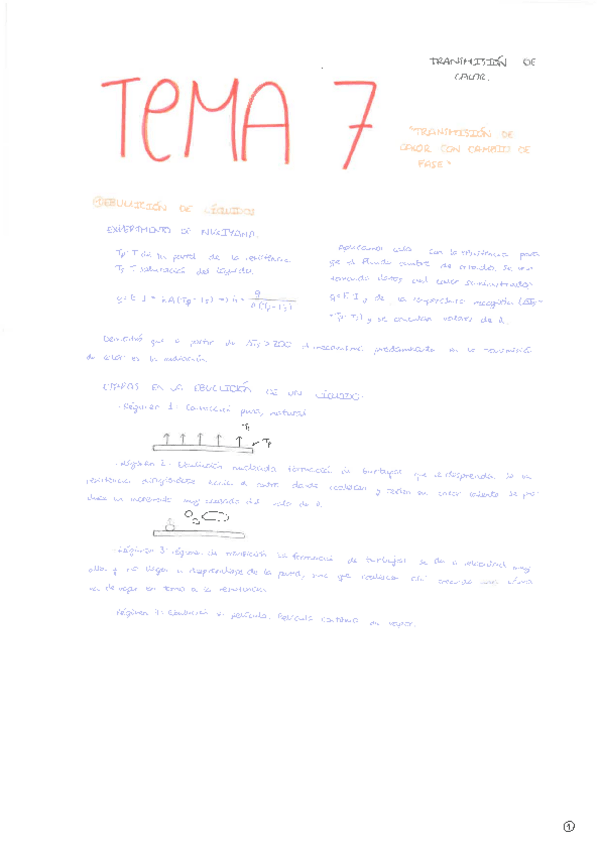 TRANSMISIÓN DE
CALOR.
TEMA 7
"TRANSMISIÓN DE
CALOR CON CAMBIO DE
FASE"
① EBULLICIÓN DE LÍQUIDOS
EXPERIMENTO DE NUKIYAMA.
Tp: T de la pared de la resistencia
Ts: T saturación del líquido.
q = E·I = hA(Tp-Ts) ⇒ h = q / A(Tp-Ts)
Aplicamos calor con la resistencia para
que el fluido cambie de estado. Se van
tomando datos del calor suministrado
q=E·I, y de la temperatura
Tp-Ts), y se calculan valores de h.
que a partir de >200 el mecanismo predominante en la transmisión
de calor es la radiación.
ETAPAS EN LA EBULLICIÓN DE UN LÍQUIDO.
·Régimen 1: Convección pura, natural
Tp
·Régimen 2: Ebullición nucleada formación de burbujas que se desprenden de la
resistencia donde colapsan y se pro-
duce un incremento muy acusado del valor de h.
·Régimen 3: régimen de transición. La formación de burbujas se da a velocidad muy
alta y no llegan a desprenderse de la pared, sino que colapsan creando una
de vapor en torno a la resistencia.
Régimen Ebullición en película. Película continua de vapor.
1